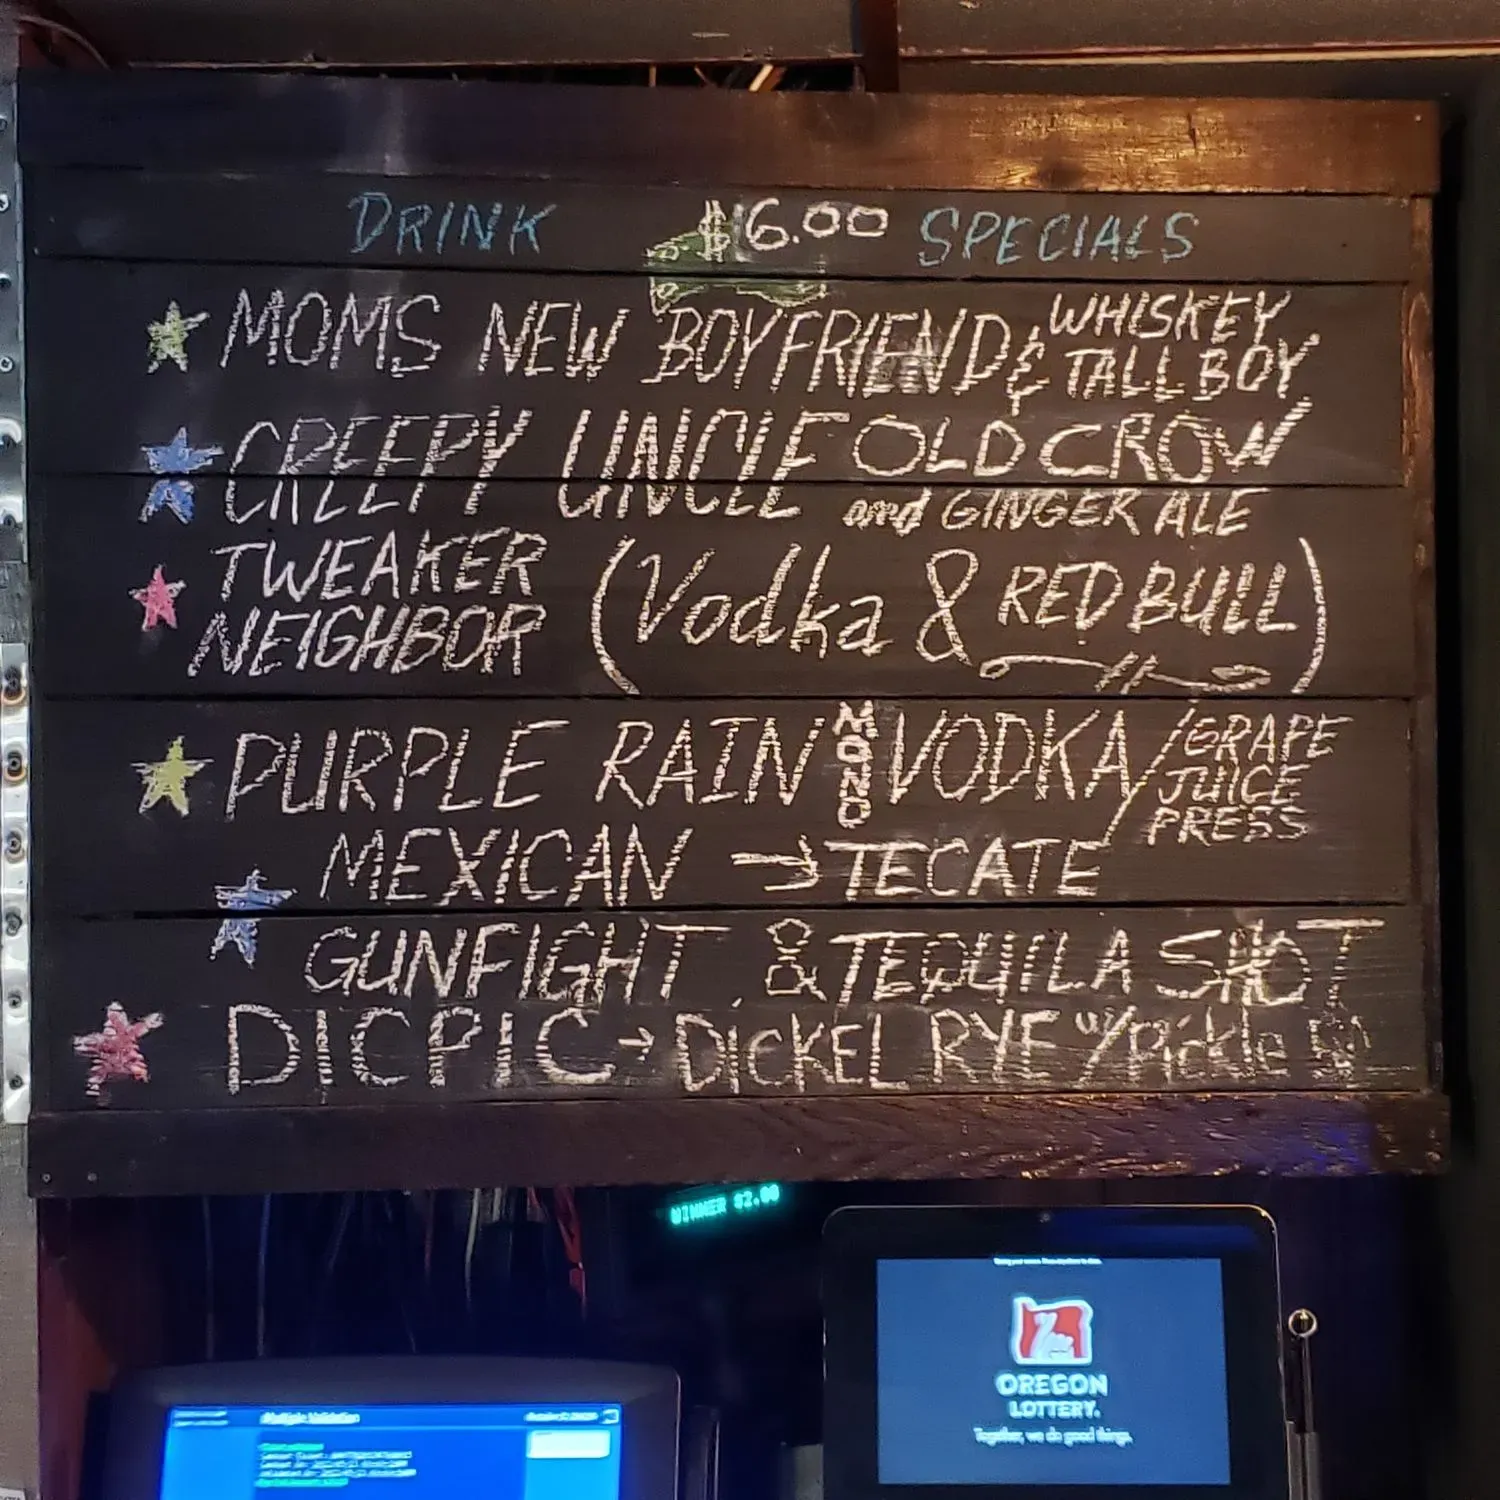 DRINK $6.00 SPECIALS
MOMS NEW BOYFRIEND & WHISKEY
TALL BOY
CREEPY UNCLE OLD CROW
and GINGER ALE
TWEAKER
NEIGHBOR (Vodka & RED BULL)
PURPLE RAIN VODKA/GRAPE
JUICE
PRESS
MEXICAN → TECATE
GUNFIGHT & TEQUILA SHOT
DICPIC → DICKEL RYE W/Pickle
WINNER $2.00
OREGON
LOTTERY.
Together, we do good things.